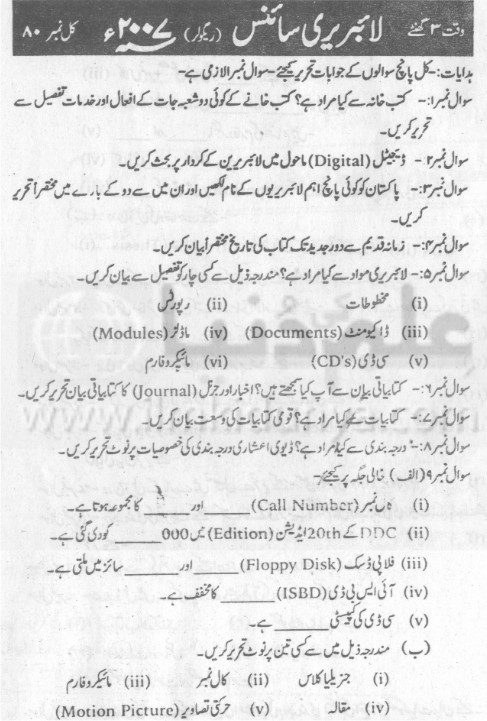 وقت ۳ گھنٹے لائبریری سائنس (ریگولر) سنہ ۲۰۰۷ء کل نمبر ۸۰
ہدایات:- کل پانچ سوالوں کے جوابات تحریر کیجئے - سوال نمبر الازمی ہے -
سوال نمبر۱:- کتب خانہ سے کیا مراد ہے؟ کتب خانے کے کوئی دو شعبہ جات کے افعال اور خدمات تفصیل سے
تحریر کریں۔
سوال نمبر۲:- ڈیجیٹل (Digital) ماحول میں لائبریرین کے کردار پر بحث کریں۔
سوال نمبر۳:- پاکستان کو کوئی پانچ اہم لائبریریوں کے نام لکھیں اور ان میں سے دو کے بارے میں مختصراً تحریر
کریں۔
سوال نمبر۴:- زمانہ قدیم سے دور جدید تک کتاب کی تاریخ مختصراً بیان کریں۔
سوال نمبر۵:- لائبریری مواد سے کیا مراد ہے؟ مندرجہ ذیل میں سے کسی چار کو تفصیل سے بیان کریں۔
(i) مخطوطات (ii) رپورٹس
(iii) ڈاکیومنٹ (Documents) (iv) ماڈلز (Modules)
(v) سی ڈی (CD's) (vi) مائیکروفارم
سوال نمبر۶:- کتابیاتی بیان سے آپ کیا سمجھتے ہیں؟ اخبار اور جرنل (Journal) کا کتابیاتی بیان تحریر کریں۔
سوال نمبر۷:- کتابیات سے کیا مراد ہے؟ قومی کتابیات کی وسعت بیان کریں۔
سوال نمبر۸:- درجہ بندی سے کیا مراد ہے؟ ڈیوی اعشاری درجہ بندی کی خصوصیات پر نوٹ تحریر کریں۔
سوال نمبر۹ (الف) خالی جگہ پر کیجئے:-
(i) کال نمبر (Call Number) ______ اور ______ کا مجموعہ ہوتا ہے۔
(ii) DDC کے 20th ایڈیشن (Edition) میں 000 ______ کو دی گئی ہے۔
(iii) فلاپی ڈسک (Floppy Disk) ______ اور ______ سائز میں ملتی ہے۔
(iv) آئی ایس بی ڈی (ISBD) ______ کا مخفف ہے۔
(v) سی ڈی کی کپیسٹی ______ ہے۔
(ب) مندرجہ ذیل میں سے کسی تین پر نوٹ تحریر کریں۔
(i) جزیلیا کلاس (ii) کال نمبر (iii) مائیکروفارم
(iv) مقالہ (v) حرکتی تصاویر (Motion Picture)